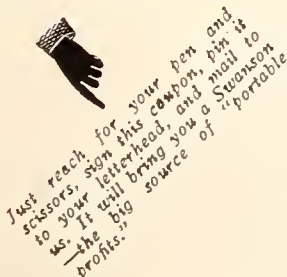 Just reach for your pen and
scissors, sign this coupon, pin it
to your letterhead, and mail to
us. It will bring you a Swanson
—the big source of "portable
profits."